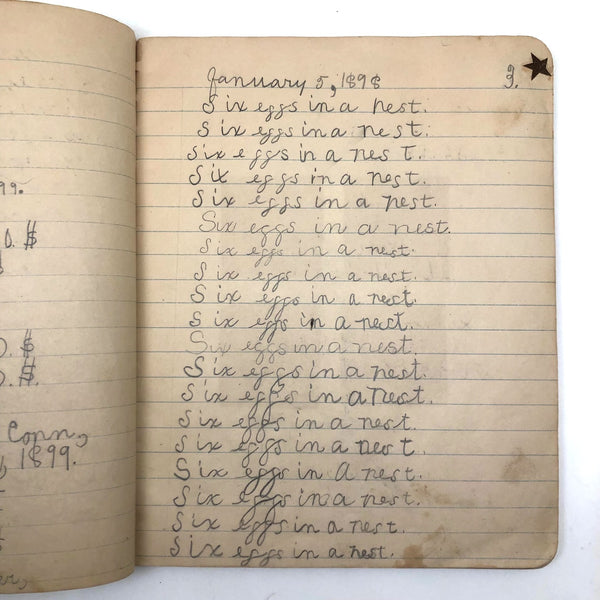 99.
Conn,
1899.
January 5, 1898 3.
Six eggs in a nest.
Six eggs in a nest.
Six eggs in a nest.
Six eggs in a nest.
Six eggs in a nest.
Six eggs in a nest.
Six eggs in a nest.
Six eggs in a nest.
Six eggs in a nest.
Six eggs in a nect.
Six eggs in a nest.
Six eggs in a nest.
Six eggs in a nest.
Six eggs in a nest.
Six eggs in a nest.
Six eggs in A nest.
Six eggs in a nest.
Six eggs in a nest.
Six eggs in a nest.